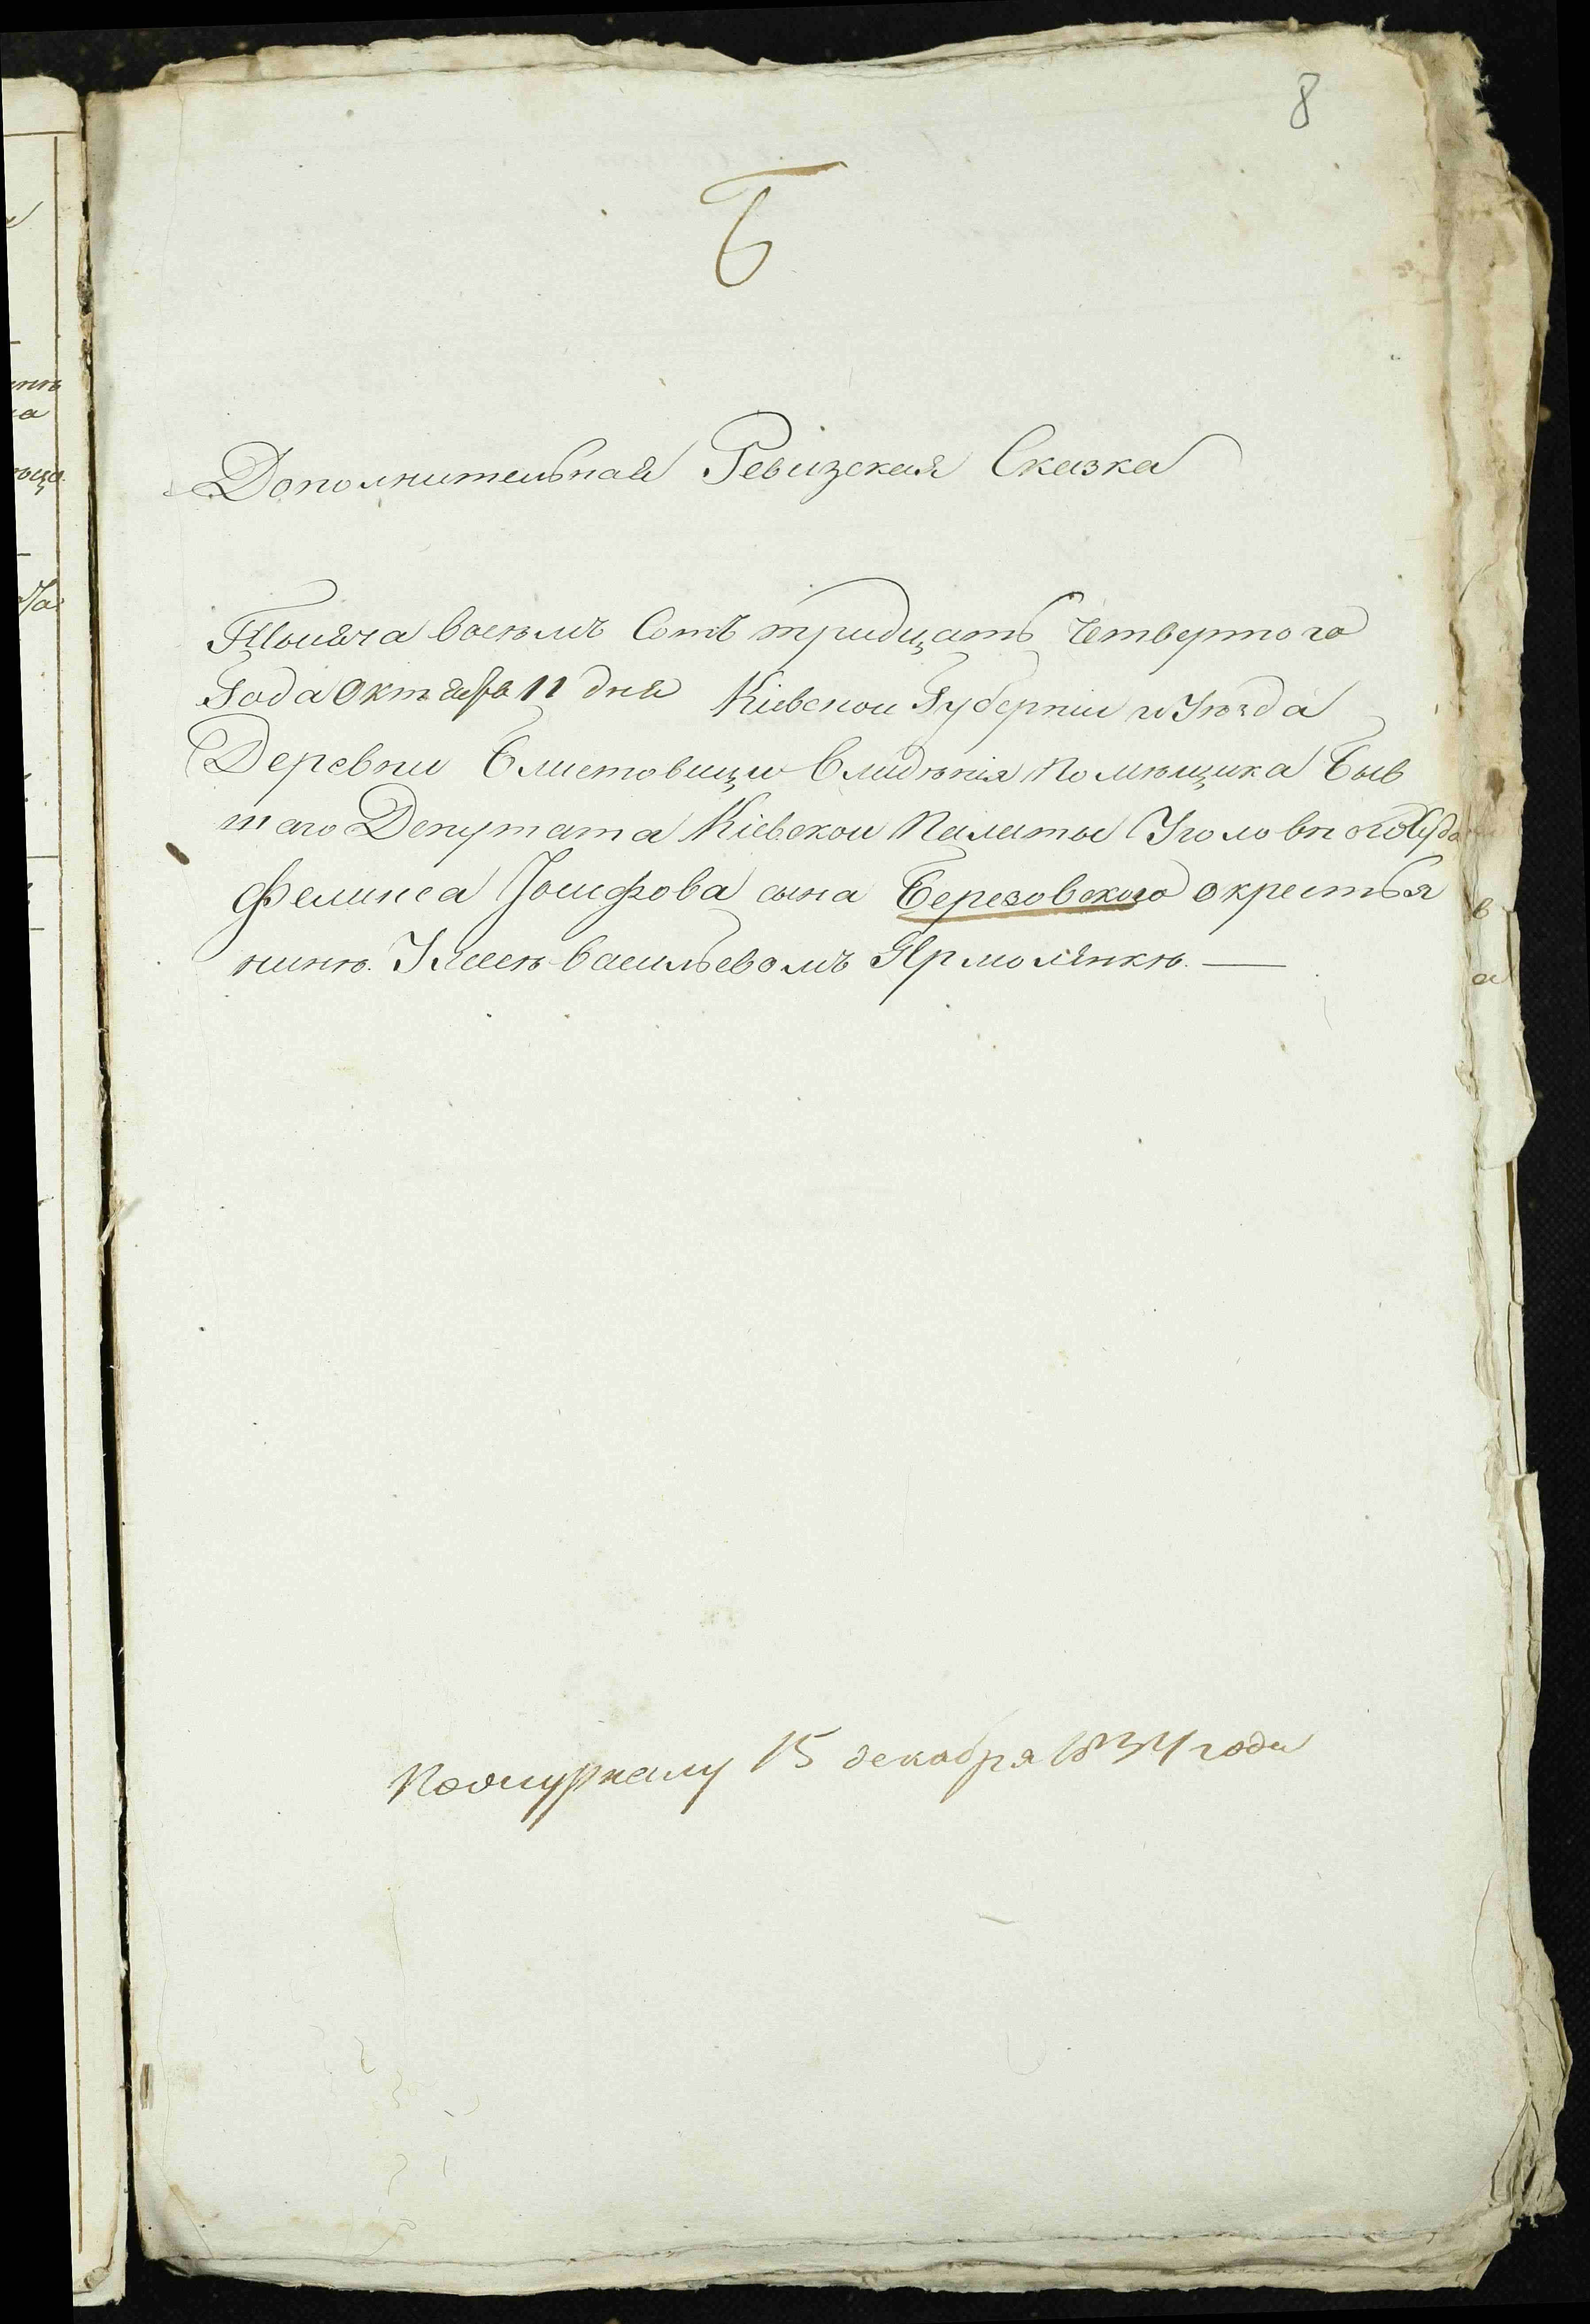 8
Б
Дополнительная Ревизская Сказка
Тысяча восемъ Сотъ тридцать Четвертого
Года Октября 11 дня Кіевской Губерніи и Уѣзда
Деревни Блиставици Владѣнія Помѣщика Быв
шаго Депутата Кіевской Палаты Уголовного Суда
Феликса Іосифова сына Березовского окрестья
нинѣ Васильевомъ Ярмолянкѣ. —
Пожурналу 15 декабря 1834 года